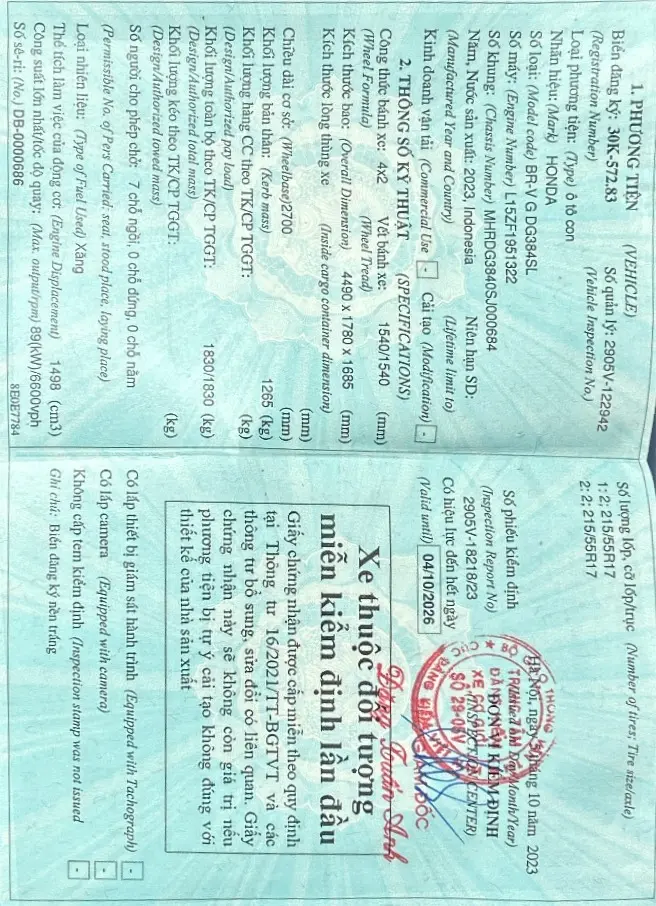 1. PHƯƠNG TIỆN (VEHICLE)
Biển đăng ký: 30K-572.83 Số quản lý: 2905V-122942
(Registration Number) (Vehicle Inspection No.)
Loại phương tiện: (Type) ô tô con
Nhãn hiệu: (Mark) HONDA
Số loại: (Model code) BR-V G DG384SL
Số máy: (Engine Number) L15ZF1951322
Số khung: (Chassis Number) MHRDG3840SJ000684
Năm, Nước sản xuất: 2023, Indonesia Niên hạn SD:
(Manufactured Year and Country) (Lifetime limit to)
Kinh doanh vận tải (Commercial Use) - Cải tạo (Modification) -
2. THÔNG SỐ KỸ THUẬT (SPECIFICATIONS)
Công thức bánh xe: 4x2 Vết bánh xe: 1540/1540 (mm)
(Wheel Formula) (Wheel Tread)
Kích thước bao: (Overall Dimension) 4490 x 1780 x 1685 (mm)
Kích thước lòng thùng xe (Inside cargo container dimension)
(mm)
Chiều dài cơ sở: (Wheelbase) 2700 (mm)
Khối lượng bản thân: (Kerb mass) 1265 (kg)
Khối lượng hàng CC theo TK/CP TGGT: (kg)
(Design/Authorized pay load)
Khối lượng toàn bộ theo TK/CP TGGT: 1830/1830 (kg)
(Design/Authorized total mass)
Khối lượng kéo theo TK/CP TGGT: (kg)
(Design/Authorized towed mass)
Số người cho phép chở: 7 chỗ ngồi, 0 chỗ đứng, 0 chỗ nằm
(Permissible No. of Pers Carried: seat, stood place, laying place)
Loại nhiên liệu: (Type of Fuel Used) Xăng
Thể tích làm việc của động cơ: (Engine Displacement) 1498 (cm3)
Công suất lớn nhất/tốc độ quay: (Max. output/rpm) 89(kW)/6600vph
Số sê-ri: (No.) DB-0000686 8E0E7784
Số lượng lốp, cỡ lốp/trục (Number of tires; Tire size/axle)
1: 2; 215/55R17
2: 2; 215/55R17
Hà Nội, ngày 5 tháng 10 năm 2023
Số phiếu kiểm định
(Inspection Report No)
ĐƠN VỊ KIỂM ĐỊNH
2905V-18218/23
(INSPECTION CENTER)
Có hiệu lực đến hết ngày
(Valid until) 04/10/2026
GIÁM ĐỐC
Đặng Tuấn Anh
Xe thuộc đối tượng
miễn kiểm định lần đầu
Giấy chứng nhận được cấp miễn theo quy định
tại Thông tư 16/2021/TT-BGTVT và các
thông tư bổ sung, sửa đổi có liên quan. Giấy
chứng nhận này sẽ không còn giá trị nếu
phương tiện bị tự ý cải tạo không đúng với
thiết kế của nhà sản xuất
Có lắp thiết bị giám sát hành trình (Equipped with Tachograph) -
Có lắp camera (Equipped with camera) -
Không cấp tem kiểm định (Inspection stamp was not issued -
Ghi chú: Biển đăng ký nền trắng